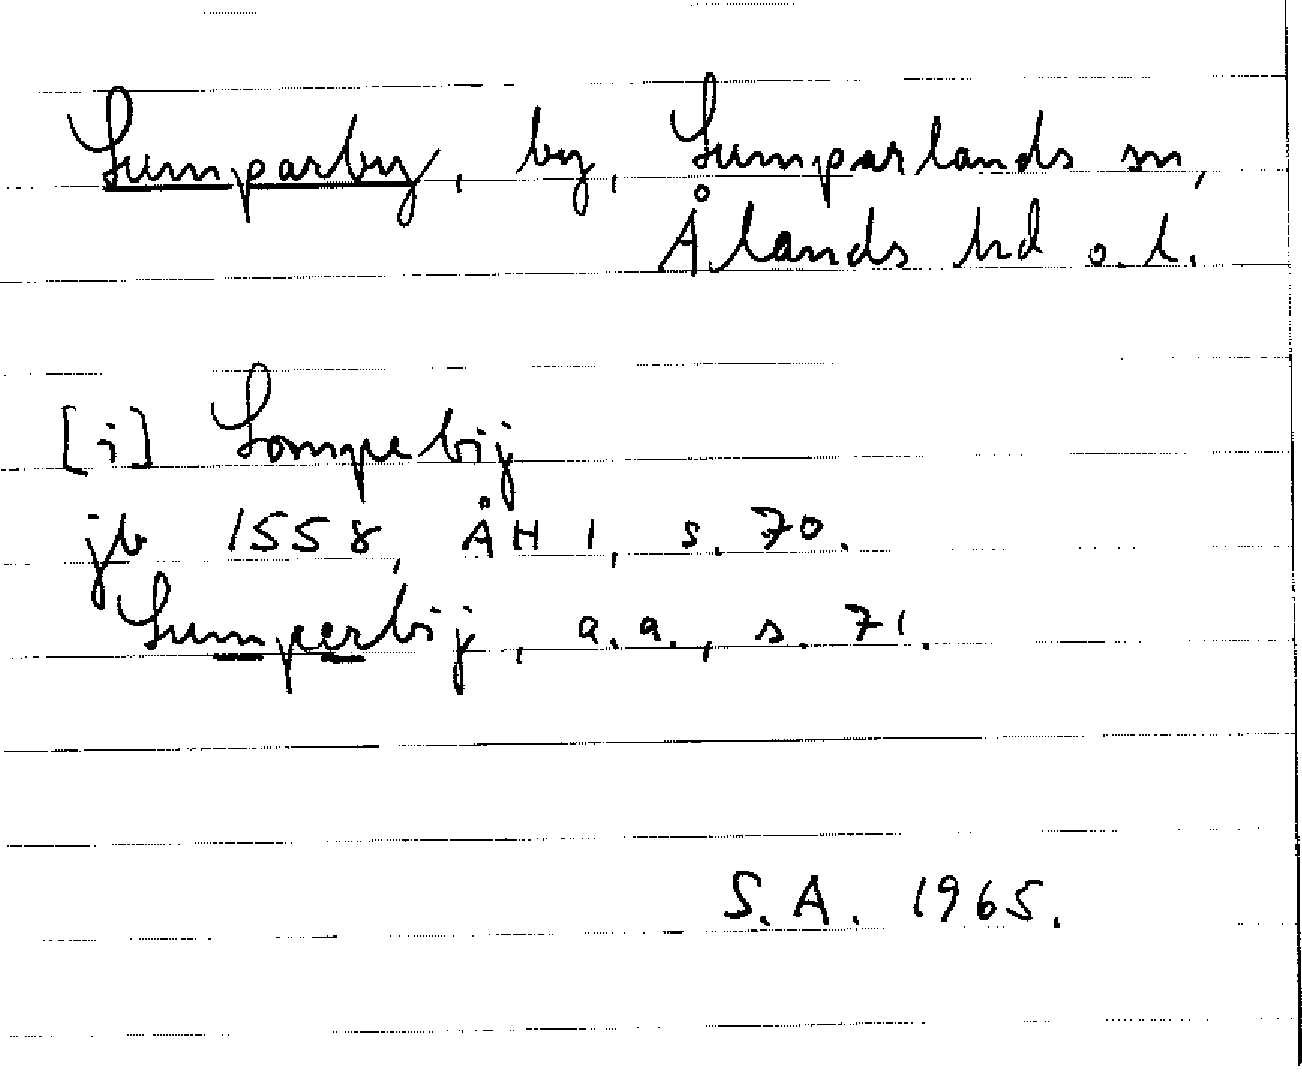 Lumparby, by, Lumparlands sn,
Ålands hd o. l.
[i] Lompebij
jb 1558, ÅH 1, s. 70.
Lumperbij, a.a., s. 71.
S.A. 1965.